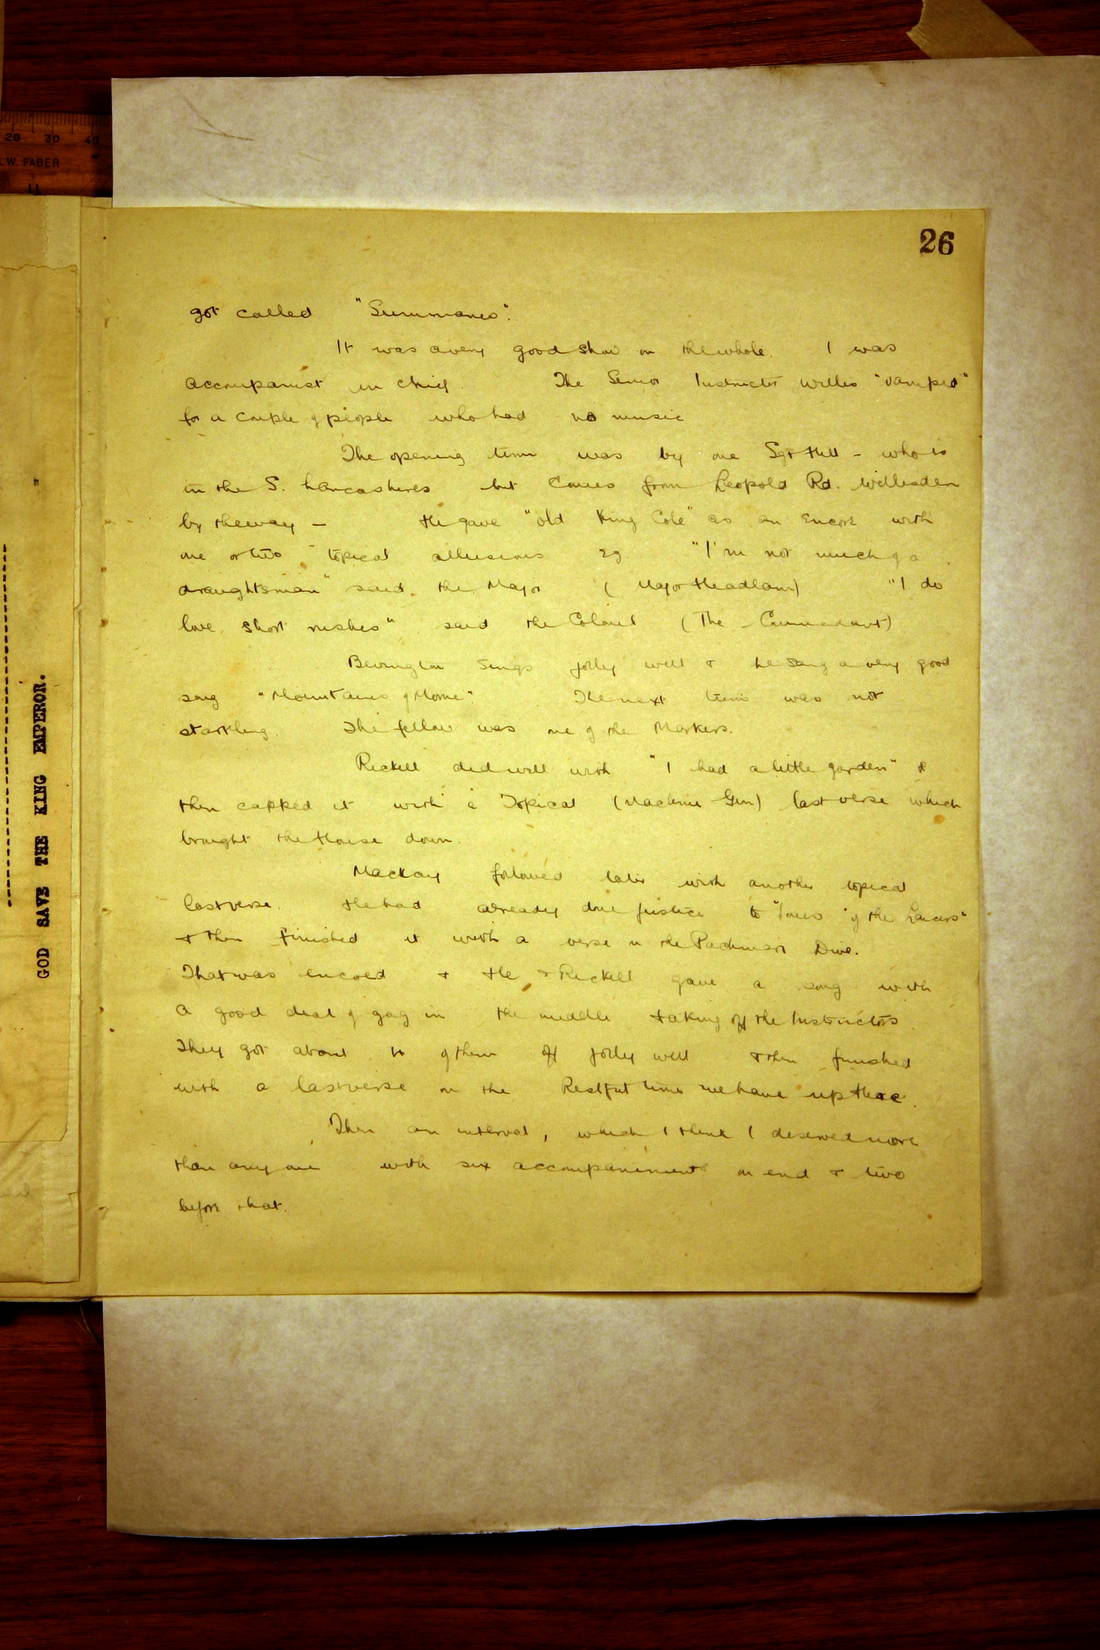 20 30 40
W. FABER
11
GOD SAVE THE KING EMPEROR.
26
got called "Summaries".
It was a very good show on the whole. I was
accompanist in chief. The Senior Instructor Willis "vamped"
for a couple of people who had no music
The opening turn was by one Sgt Hill - who is
in the S. Lancashires but comes from Leopold Rd. Willesden
by the way - He gave "old King Cole" as an Encore with
one or two topical allusions eg "I'm not much of a
draughtsman" said the Major (Major Headlam) "I do
love short rushes" said the Colonel (The Commandant)
Bevington sings jolly well & he sang a very good
song "Mountains of Morne" The next turn was not
startling. The fellow was one of the Markers.
Rickett did well with "I had a little garden" &
then capped it with a Topical (Machine Gun) last verse which
brought the House down.
Mackay followed later with another topical
last verse. He had already done justice to of the Lancers"
& then finished it with a verse on the
That was encored & He & Rickett gave a song with
a good deal of gag in the middle taking off the Instructors
They got about of them off jolly well & then finished
with a last verse on the Restful time we have up there.
Then an interval, which I think I deserved more
than anyone with six accompaniments on end & two
before that.